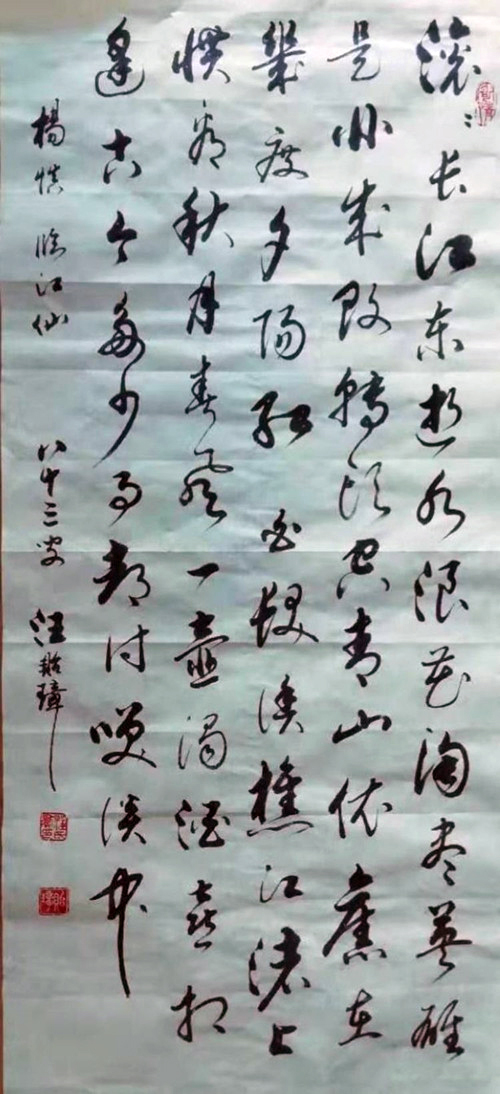 滚〻长江东逝水浪花淘尽英雄
是非成败轉头空青山依舊在
幾度夕阳红 白髮渔樵江渚上
惯看秋月春风一壶浊酒喜相
逢古今多少事都付笑谈中
楊慎临江仙 八十三叟 汪璋